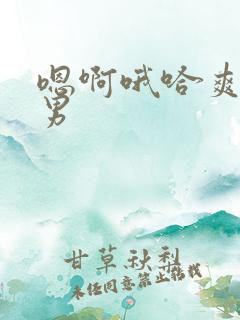 嗯啊哦哈爽
男
甘草秋梨
未经同意禁止转载